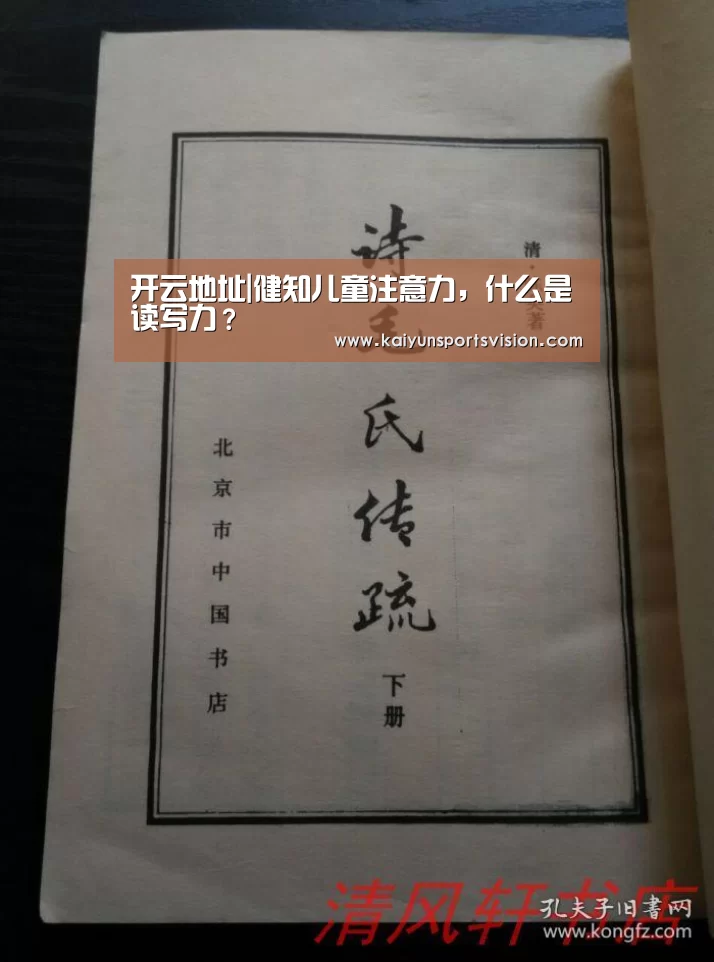 清·
著
开云地址|健知儿童注意力，什么是
读写力？
www.kaiyunsportsvision.com
诗毛氏传疏
下册
北京市中国书店
清风轩书店
孔夫子旧书网
www.kongfz.com